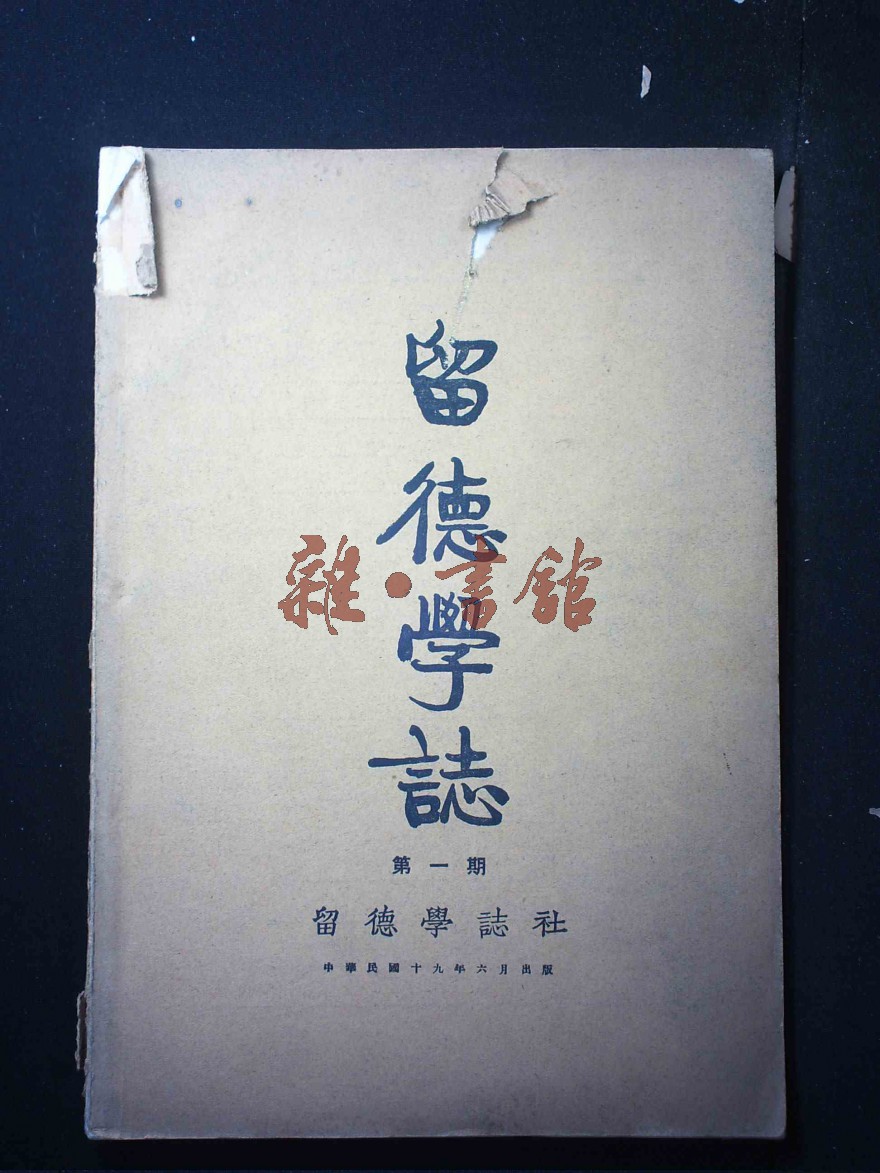 留德學誌
雜·書館
第一期
留德學誌社
中華民國十九年六月出版